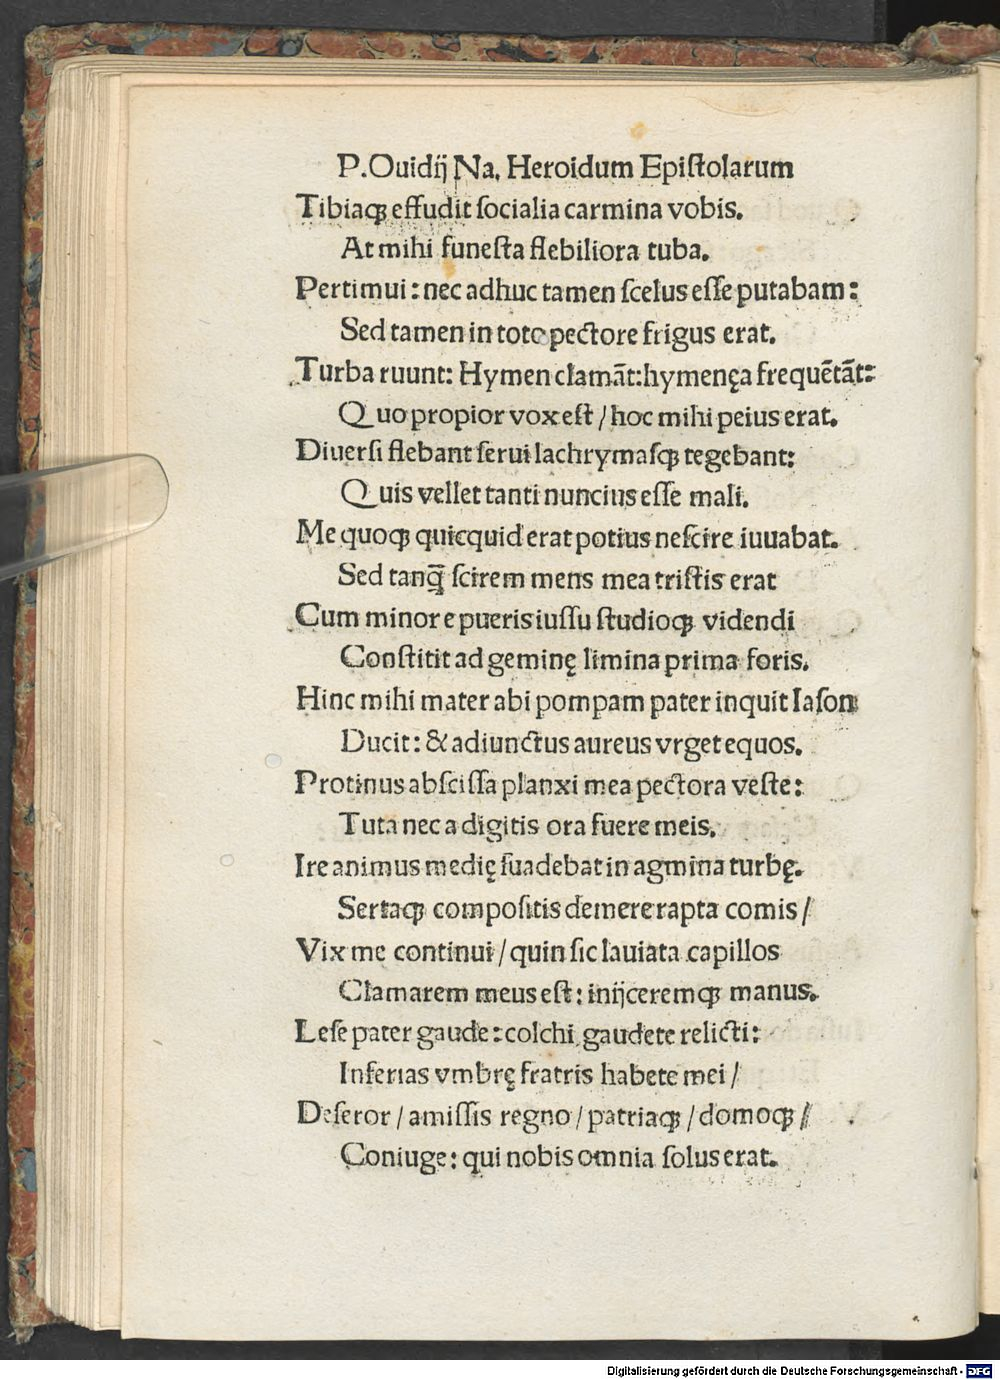 P. Ouidij Na. Heroidum Epistolarum
Tibiaqꝫ effudit socialia carmina vobis.
At mihi funesta flebiliora tuba.
Pertimui: nec adhuc tamen scelus esse putabam:
Sed tamen in toto pectore frigus erat.
Turba ruunt: Hymen clamãt: hymenęa frequẽtãt:
Quo propior vox est / hoc mihi peius erat.
Diuersi flebant serui lachrymasqꝫ tegebant:
Quis vellet tanti nuncius esse mali.
Me quoqꝫ quicquid erat potius nescire iuuabat.
Sed tanq̃ scirem mens mea tristis erat
Cum minor e pueris iussu studioqꝫ videndi
Constitit ad geminę limina prima foris.
Hinc mihi mater abi pompam pater inquit Iason
Ducit: & adiunctus aureus vrget equos.
Protinus abscissa planxi mea pectora veste:
Tuta nec a digitis ora fuere meis.
Ire animus medię suadebat in agmina turbę.
Sertaqꝫ compositis demere rapta comis /
Vix me continui / quin sic lauiata capillos
Clamarem meus est: inijceremqꝫ manus.
Lese pater gaude: colchi gaudete relicti:
Inferias vmbrę fratris habete mei /
Deseror / amissis regno / patriaqꝫ / domoqꝫ /
Coniuge: qui nobis omnia solus erat.
Digitalisierung gefördert durch die Deutsche Forschungsgemeinschaft - DFG